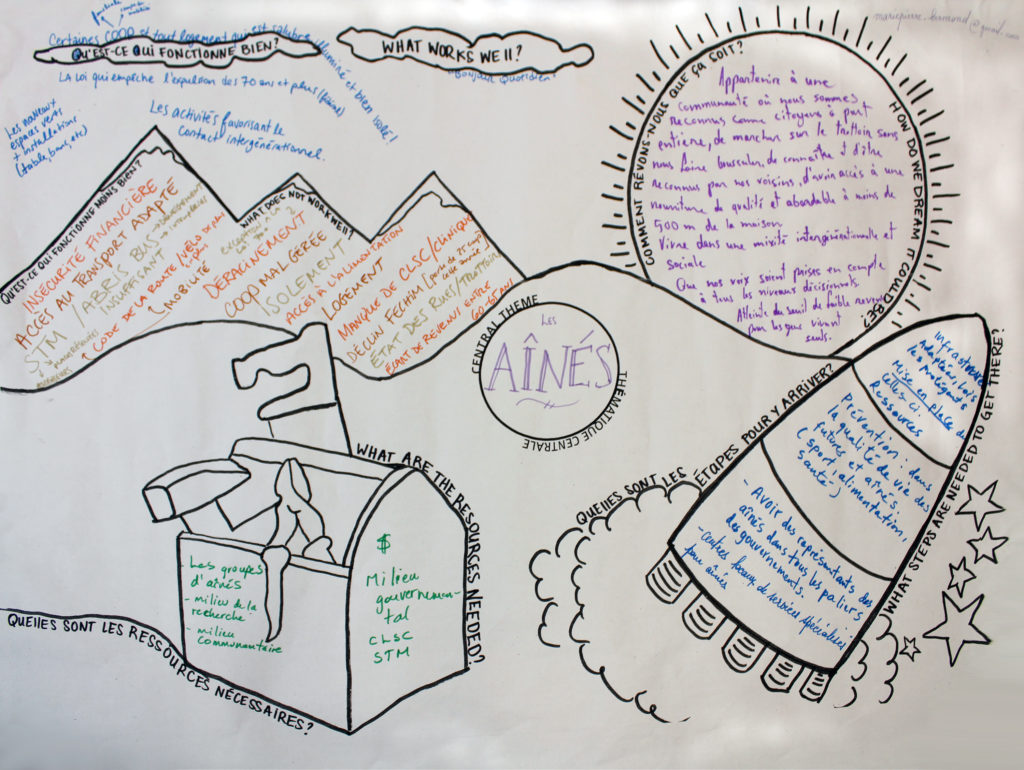 Certaines COOP et tout logement qui est salubre, illuminé et bien isolé!
QU'EST-CE QUI FONCTIONNE BIEN?
La loi qui empêche l'expulsion des 70 ans et plus
WHAT WORKS WELL?
"Bonjour Quotidien"
Les nouveaux
espaces verts
+ installations
(table, banc, etc)
Les activités favorisant le
contact intergénérationnel.
QU'EST-CE QUI FONCTIONNE MOINS BIEN?
WHAT DOES NOT WORK WELL?
INSÉCURITÉ FINANCIÈRE
ACCÈS AU TRANSPORT ADAPTÉ
STM / ABRIS BUS
INSUFFISANT
CODE DE LA ROUTE / VÉLO
MOBILITÉ
DÉRACINEMENT
COOP MAL GÉRÉE
ISOLEMENT
ACCÈS À L'ALIMENTATION
LOGEMENT
MANQUE DE CLSC/CLINIQUE
DÉCLIN FECHIM
ÉTAT DES RUES/TROTTOIR
ÉCART DE REVENU ENTRE
60-65 ANS
COMMENT RÊVONS-NOUS QUE ÇA SOIT?
HOW DO WE DREAM IT COULD BE?
Appartenir à une
communauté où nous sommes
reconnus comme citoyens à part
entière, de marcher sur le trottoir sans
nous faire bousculer, de connaître et d'être
reconnus par nos voisins, d'avoir accès à une
nourriture de qualité et abordable à moins de
500 m de la maison
Vivre dans une mixité intergénérationnelle et
sociale
Que nos voix soient prises en compte
à tous les niveaux décisionnels.
Atteinte du seuil de faible revenu
pour les gens vivant
seuls.
CENTRAL THEME
Les
AÎNÉS
THÉMATIQUE CENTRALE
QUELLES SONT LES ÉTAPES POUR Y ARRIVER?
WHAT STEPS ARE NEEDED TO GET THERE?
Infrastructures
Adaptées, Lois
les protégeants
Mise en place de
celles-ci.
Ressources
Prévention: dans
la qualité de vie des
futures et aînés.
(sport, alimentation,
santé)
- Avoir des représentants des
aînés dans tous les paliers
des gouvernements.
- Centres locaux de services spécialisés
pour aînés
WHAT ARE THE RESOURCES NEEDED?
QUELLES SONT LES RESSOURCES NÉCESSAIRES?
Les groupes
d'aînés
- milieu de la
recherche
- milieu
communautaire
$
Milieu
gouvernemen-
tal
CLSC
STM